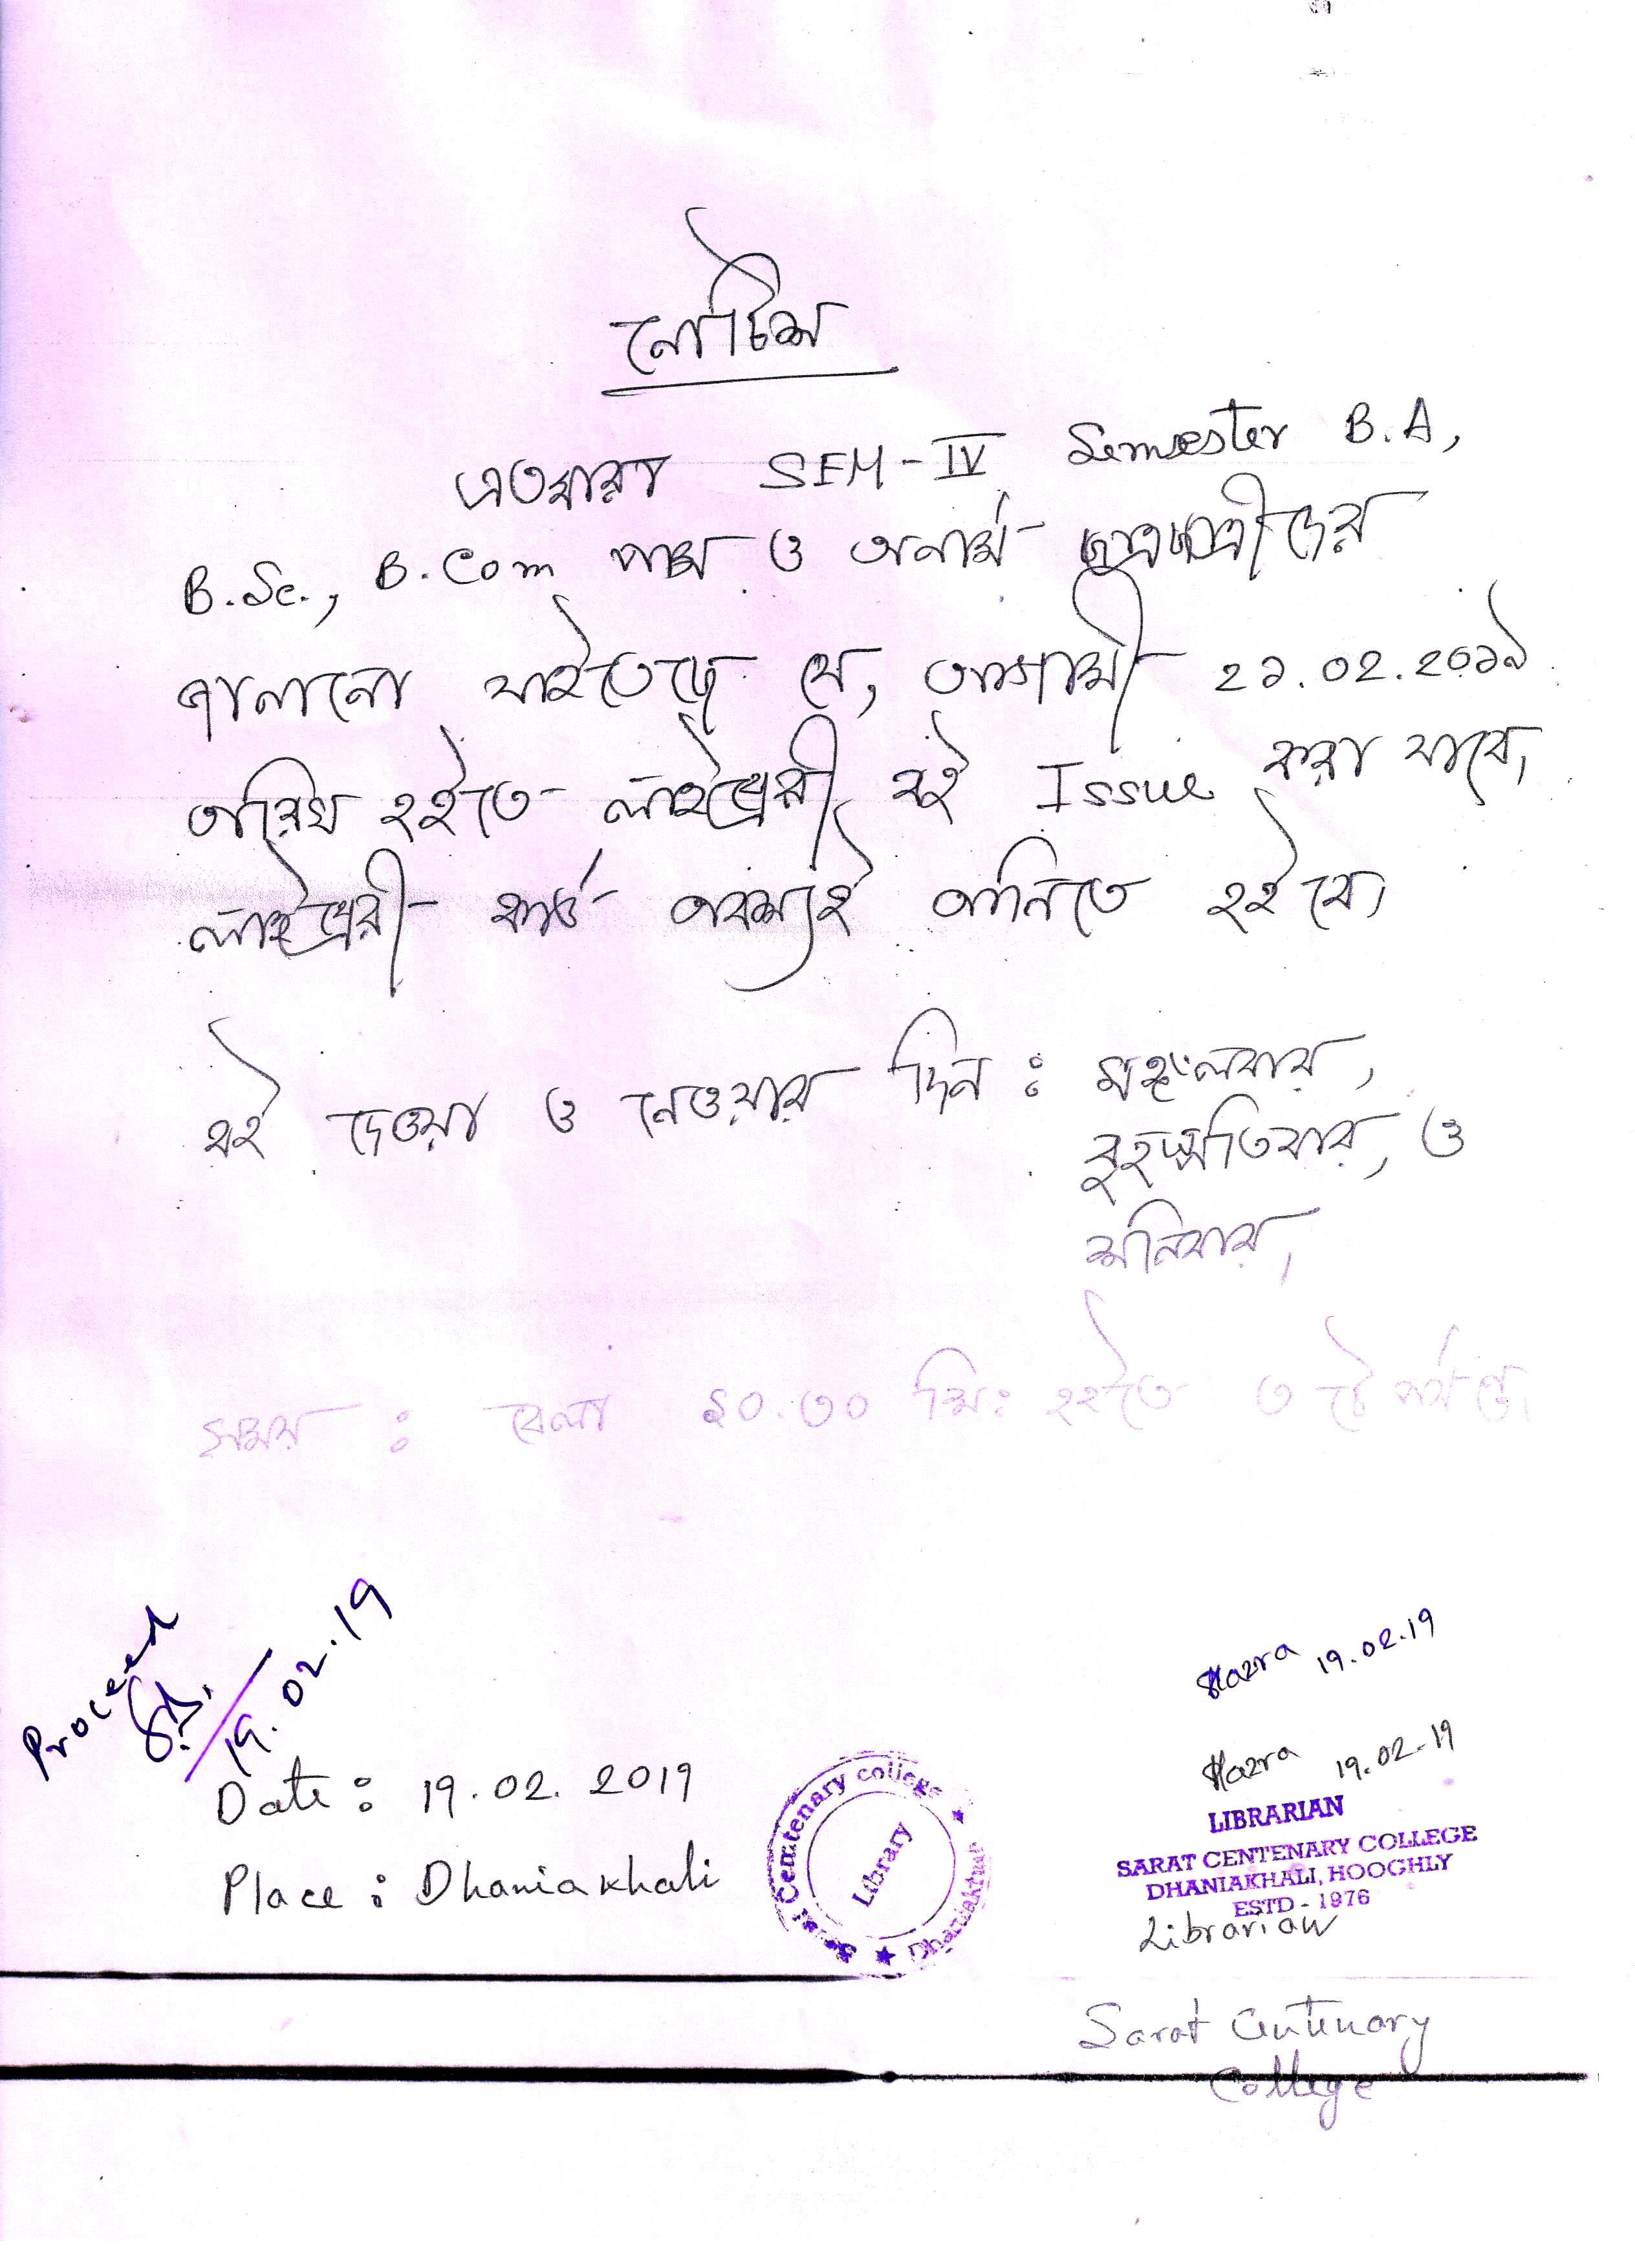 নোটিশ
এতদ্বারা SEM-IV Semester B.A,
B.Sc., B.Com পাশ ও অনার্স ছাত্রছাত্রীদের
জানানো যাইতেছে যে, আগামী ২১.০২.২০১৯
তারিখ হইতে লাইব্রেরী বই Issue করা যাবে,
লাইব্রেরী কার্ড অবশ্যই আনিতে হইবে।
বই দেওয়া ও নেওয়ার দিন : মঙ্গলবার,
বৃহস্পতিবার, ও
শনিবার,
সময় : বেলা ১০.৩০ মি: হইতে ৩ টে পর্যন্ত।
Proceed
19.02.19
Hazra 19.02.19
Hazra 19.02.19
Date : 19.02.2019
Place : Dhaniakhali
Sarat Centenary college
Library
LIBRARIAN
SARAT CENTENARY COLLEGE
DHANIAKHALI, HOOGHLY
ESTD - 1976
Librarian
Sarat Centenary
College